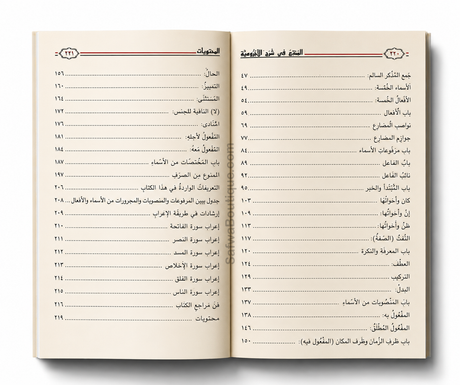 ٢٢٠
الممتع في شرح الآجرومية
جمع المذكر السالم: ٤٧
الأسماء الخمسة: ٤٩
الأفعال الخمسة: ٥٤
باب الأفعال ٥٩
نواصب المضارع ٦٩
جوازم المضارع ٧٧
باب مرفوعات الأسماء ٨٤
باب الفاعل ٨٩
نائب الفاعل ٩٢
باب المبتدأ والخبر ٩٥
كان وأخواتها ١٠٣
إن وأخواتها: ١٠٩
ظن وأخواتها: ١١٣
النعت (الصفة): ١١٧
باب المعرفة والنكرة ١٢٠
العطف ١٢٤
التركيب ١٢٩
البدل: ١٣٣
باب المنصوبات من الأسماء ١٣٧
المفعول به: ١٣٨
المفعول المطلق: ١٤٦
باب ظرف الزمان وظرف المكان (المفعول فيه): ١٥٠
المحتويات
٢٢١
الحال: ١٥٦
التمييز: ١٦٠
المستثنى: ١٦٤
(لا) النافية للجنس: ١٧٢
المنادى: ١٧٦
المفعول لأجله: ١٨١
المفعول معه: ١٨٤
باب المخفضات من الأسماء ١٨٧
الممنوع من الصرف ١٩٧
التعريفات الواردة في هذا الكتاب ٢٠٦
جدول يبين المرفوعات والمنصوبات والمجرورات من الأسماء والأفعال ٢٠٨
إرشادات في طريقة الإعراب ٢٠٩
إعراب سورة الفاتحة ٢١٠
إعراب سورة النصر ٢١١
إعراب سورة المسد ٢١٢
إعراب سورة الإخلاص ٢١٣
إعراب سورة الفلق ٢١٤
إعراب سورة الناس ٢١٥
من مراجع الكتاب ٢١٦
محتويات ٢١٩
SafwaBoutique.com